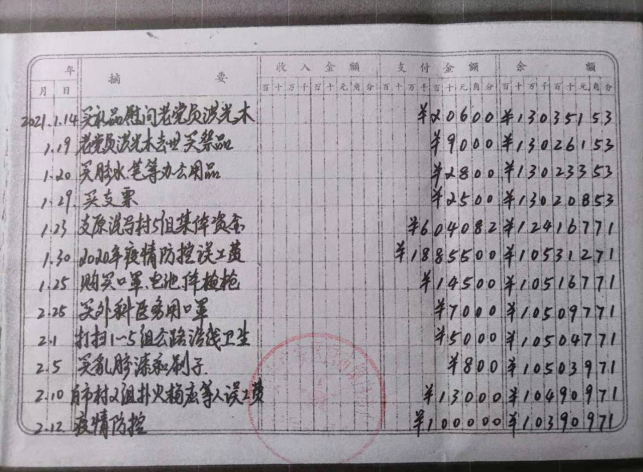 年 摘 要 收入金额 支付金额 余 额
月 日 百十万千百十元角分 百十万千百十元角分 百十万千百十元角分
2021.1.14 买礼品慰问老党员洪光木 ¥20600 ¥13035153
1.19 老党员洪光木去世买祭品 ¥9000 ¥13026153
1.20 买胶水、笔等办公用品 ¥2800 ¥13023353
1.29 买支票 ¥2500 ¥13020853
1.23 支原 村5组集体资金 ¥604082 ¥12416771
1.30 2020年疫情防控误工费 ¥1885500 ¥10531271
1.25 购买口罩、电池、体检枪 ¥14500 ¥10516771
2.25 买外科医务用口罩 ¥7000 ¥10509771
2.1 打扫1~5组公路沿线卫生 ¥5000 ¥10504771
2.5 买乳胶漆和刷子 ¥800 ¥10503971
2.10 村2组扑火 等人误工费 ¥13000 ¥10490971
2.12 疫情防控 ¥100000 ¥10390971